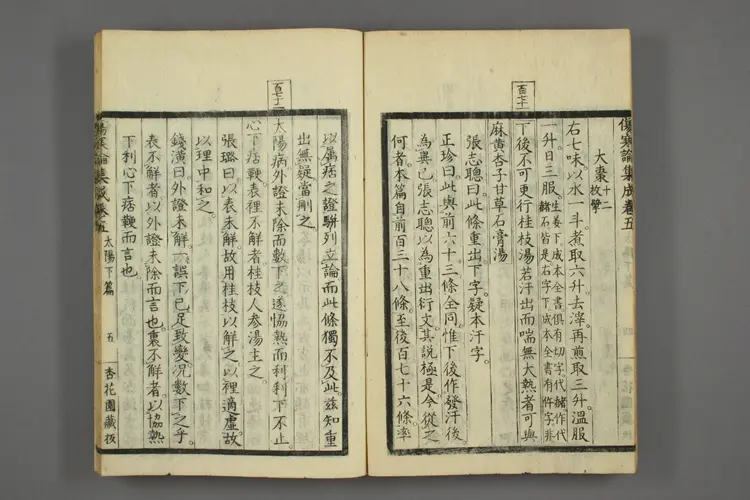 傷寒論集成卷五
大棗十二枚擘
右七味以水一斗煮取六升去滓再煎取三升溫服
一升日三服。生姜下成本全書俱有切字代赭作代
赭石皆是右字下成本全書有件字非
百七十
下後不可更行桂枝湯若汗出而喘無大熱者可與
麻黃杏子甘草石膏湯
張志聰曰此條重出下字疑本汗字。
正珍曰此與前六十三條全同。惟下後作發汗後
為異已張志聰以為重出衍文其說極是。今從之
何者本篇自前百三十八條。至後百七十六條。率
以屬痞之證駢列立論而此條獨不及此。茲知重
出無疑當刪之。
百七十一
太陽病外證未除而數下之遂恊熱而利利下不止。
心下痞鞕。表裡不解者桂枝人參湯主之。
張璐曰以表未解故用桂枝以解之以裡適虛。故
以理中和之。
錢潢曰外證未解。一誤下。已足致變況數下之乎。
表不解者以外證未除而言也。裏不解者。以協熱
下利心下痞鞕而言也
傷寒論集成卷五 太陽下篇 五 杏花園藏板